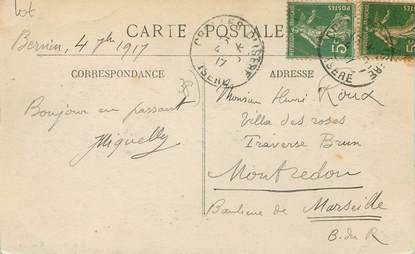 lot
CARTE POSTALE
Bernin, 4 7bre 1917
CORRESPONDANCE
ADRESSE
ISERE
POSTES
5c
ISERE
POSTES
5c
Bonjour en passant
Miquelly
Monsieur Henri Roux
Villa des roses
Traverse Brun
Montredon
Banlieue de Marseille
B. du R